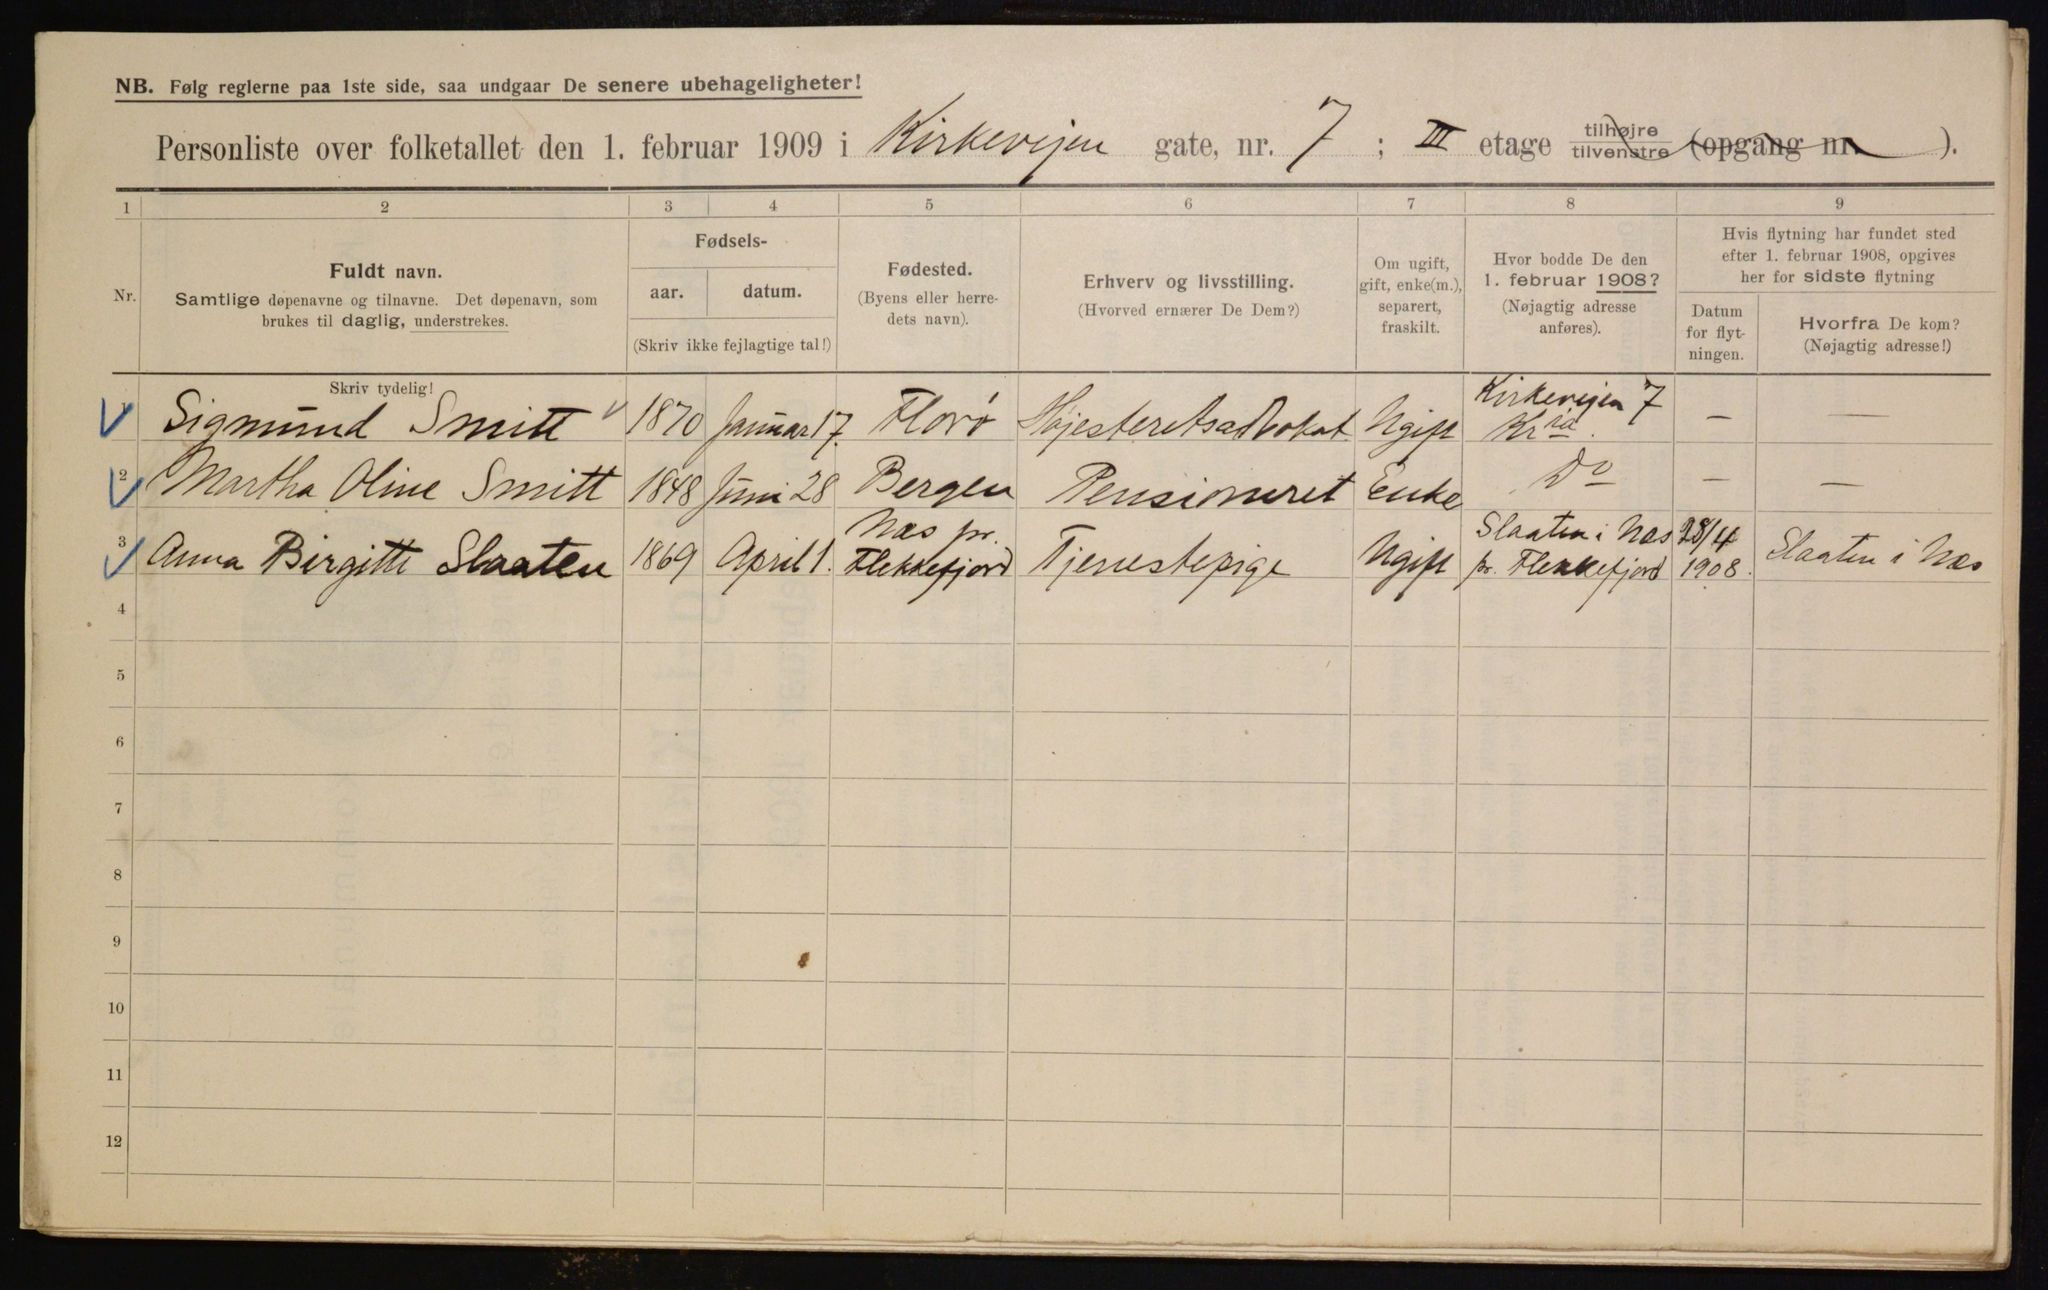 NB. Følg reglerne paa 1ste side, saa undgaar De senere ubehageligheter!
Personliste over folketallet den 1. februar 1909 i Kirkevejen gate, nr. 7 ; III etage tilhøjre tilvenstre (opgang nr. ).
1 2 3 4 5 6 7 8 9
Nr.
Fuldt navn.
Samtlige døpenavne og tilnavne. Det døpenavn, som
brukes til daglig, understrekes.
Skriv tydelig!
Fødsels-
aar. datum.
(Skriv ikke fejlagtige tal!)
Fødested.
(Byens eller herre-
dets navn).
Erhverv og livsstilling.
(Hvorved ernærer De Dem?)
Om ugift,
gift, enke(m.),
separert,
fraskilt.
Hvor bodde De den
1. februar 1908?
(Nøjagtig adresse
anføres).
Hvis flytning har fundet sted
efter 1. februar 1908, opgives
her for sidste flytning
Datum
for flyt-
ningen.
Hvorfra De kom?
(Nøjagtig adresse!)
1 Sigmund Smitt 1870 Januar 17. Florø Højesteretsadvokat Ugift Kirkevejen 7 Kr.ia. — —
2 Martha Oline Smitt 1848 Juni 28 Bergen Pensioneret Enke Do — —
3 Anna Birgitte Slaaten 1869 April 1. Næs pr. Flekkefjord Tjenestepige Ugift Slaaten i Næs pr. Flekkefjord 28/4 1908. Slaaten i Næs
4
5
6
7
8
9
10
11
12